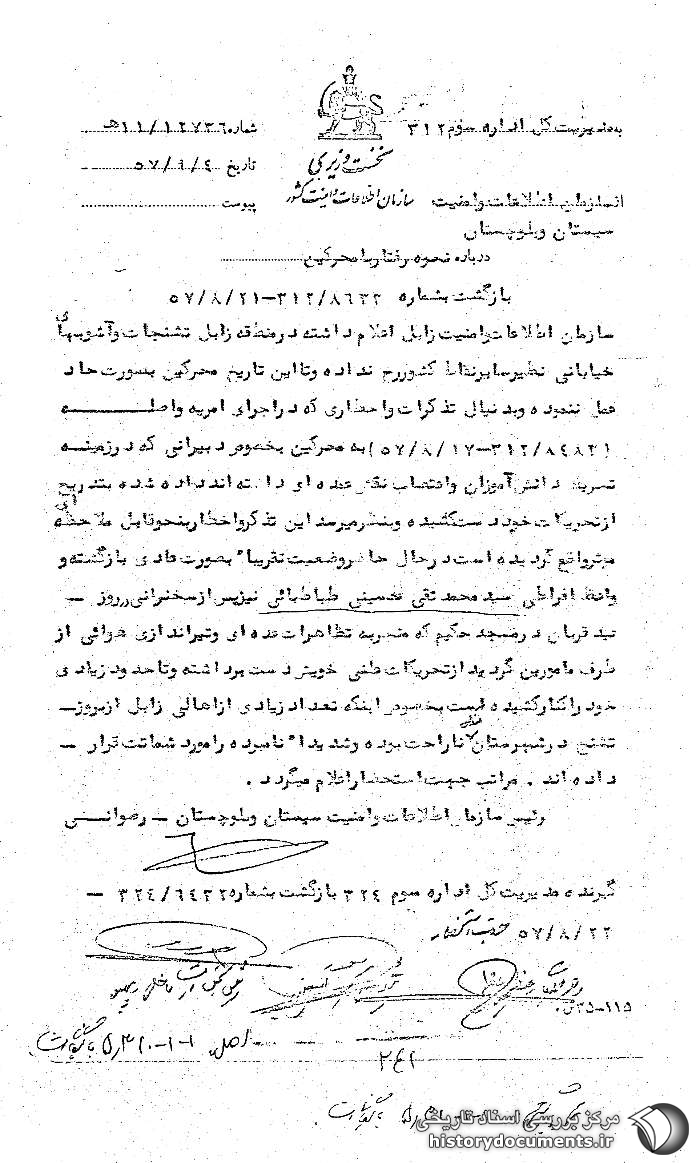 به مدیریت کل اداره سوم ۳۱۲
شماره ۱۱/۱۲۷۳۶ هـ
نخست وزیری
تاریخ ۵۷/۹/۴
سازمان اطلاعات و امنیت کشور
از سازمان اطلاعات و امنیت
پیوست
سیستان و بلوچستان
درباره نحوه رفتار با محرکین
بازگشت بشماره ۳۱۲/۸۶۳۲-۵۷/۸/۲۱
سازمان اطلاعات و امنیت زابل اعلام داشته در منطقه زابل تشنجات و آشوبهای
خیابانی نظیر سایر نقاط کشور رخ نداده و تا این تاریخ محرکین بصورت حاد
عمل ننموده و بدنبال تذکرات و اخطاری که در اجرای امریه واصله
(۳۱۲/۸۴۸۲-۵۷/۸/۱۷) به محرکین بخصوص دبیرانی که در زمینه
تحریک دانش آموزان و اعتصاب نقش عمده ای داشته اند داده شده بتدریج
از تحریکات خود دست کشیده و بنظر میرسد این تذکر و اخطار بنحو قابل ملاحظه ای
موثر واقع گردیده است در حال حاضر وضعیت تقریبا" بصورت عادی بازگشته و
واعظ افراطی سید محمد تقی حسینی طباطبائی نیز پس از سخنرانی روز -
عید قربان در مسجد حکیم که منجر به تظاهرات عده ای و تیراندازی هوائی از
طرف مامورین گردید از تحریکات علنی خویش دست برداشته و تا حدود زیادی
خود را کنار کشیده است بخصوص اینکه تعداد زیادی از اهالی زابل از بروز -
تشنج در شهرستان ناراحت بوده و شدیدا" نامبرده را مورد شماتت قرار -
داده اند . مراتب جهت استحضار اعلام میگردد .
رئیس سازمان اطلاعات و امنیت سیستان و بلوچستان - رضوانی
گیرنده مدیریت کل اداره سوم ۳۲۴ بازگشت بشماره ۳۲۴/۶۴۳۲ -
۵۷/۸/۲۲ جهت استحضار
۱۱۵-۳۵
۲۴۲
مرکز بررسی اسناد تاریخی
historydocuments.ir